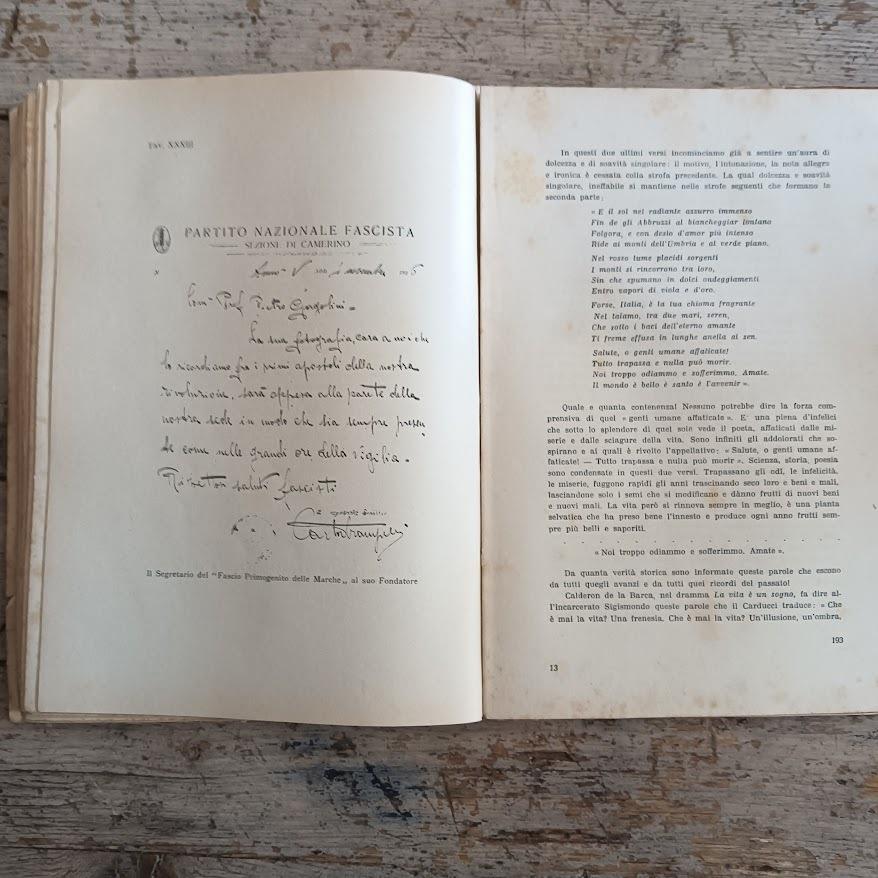 Tav. XXXIII
PARTITO NAZIONALE FASCISTA
SEZIONE DI CAMERINO
Anno V novembre
Com. Prof. Pietro Gorgolini =
La sua fotografia, cara a noi che
lo ricordiamo fra i primi apostoli della nostra
rivoluzione, sarà appesa alla parete della
nostra sede in modo che sia sempre presen
te come nelle grandi ore della vigilia.
saluti fascisti
Il Segretario del "Fascio Primogenito delle Marche„ al suo Fondatore
In questi due ultimi versi incominciamo già a sentire un'aura di
dolcezza e di soavità singolare: il motivo, l'intonazione, la nota allegra
e ironica è cessata colla strofa precedente. La qual dolcezza e soavità
singolare, ineffabile si mantiene nelle strofe seguenti che formano la
seconda parte:
« E il sol nel radiante azzurro immenso
Fin de gli Abbruzzi al biancheggiar lontano
Folgora, e con desio d'amor più intenso
Ride ai monti dell'Umbria e al verde piano.
Nel roseo lume placidi sorgenti
I monti si rincorrono tra loro,
Sin che sfumano in dolci ondeggiamenti
Entro vapori di viola e d'oro.
Forse, Italia, è la tua chioma fragrante
Nel talamo, tra due mari, seren,
Che sotto i baci dell'eterno amante
Ti freme effusa in lunghe anella al sen.
Salute, o genti umane affaticate!
Tutto trapassa e nulla può morir.
Noi troppo odiammo e sofferimmo. Amate.
Il mondo è bello è santo è l'avvenir ».
Quale e quanta contenenza! Nessuno potrebbe dire la forza com-
prensiva di quel « genti umane affaticate ». E' una piena d'infelici
che sotto lo splendore di quel sole vede il poeta, affaticati dalle mi-
serie e dalle sciagure della vita. Sono infiniti gli addolorati che so-
spirano e ai quali è rivolto l'appellativo: « Salute, o genti umane af-
faticate! — Tutto trapassa e nulla può morir ». Scienza, storia, poesia
sono condensate in questi due versi. Trapassano gli odî, le infelicità,
le miserie, fuggono rapidi gli anni trascinando seco loro e beni e mali,
lasciandone solo i semi che si modificano e dànno frutti di nuovi beni
e nuovi mali. La vita però si rinnova sempre in meglio, è una pianta
selvatica che ha preso bene l'innesto e produce ogni anno frutti sem-
pre più belli e saporiti.
. . . . . . . . . . . . . .
« Noi troppo odiammo e sofferimmo. Amate ».
Da quanta verità storica sono informate queste parole che escono
da tutti quegli avanzi e da tutti quei ricordi del passato!
Calderon de la Barca, nel dramma La vita è un sogno, fa dire al-
l'incarcerato Sigismondo queste parole che il Carducci traduce: « Che
è mai la vita? Una frenesia. Che è mai la vita? Un'illusione, un'ombra,
193
13